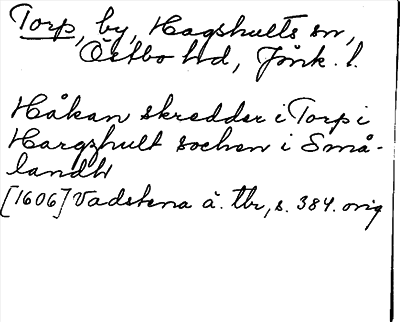 Torp, by, Hagshults sn,
Östbo hd, Jönk. l.
Håkan skredder i Torp i
Hargzhult sochen i Små-
landh
[1606] Vadstena ä. tbr, s. 384. orig